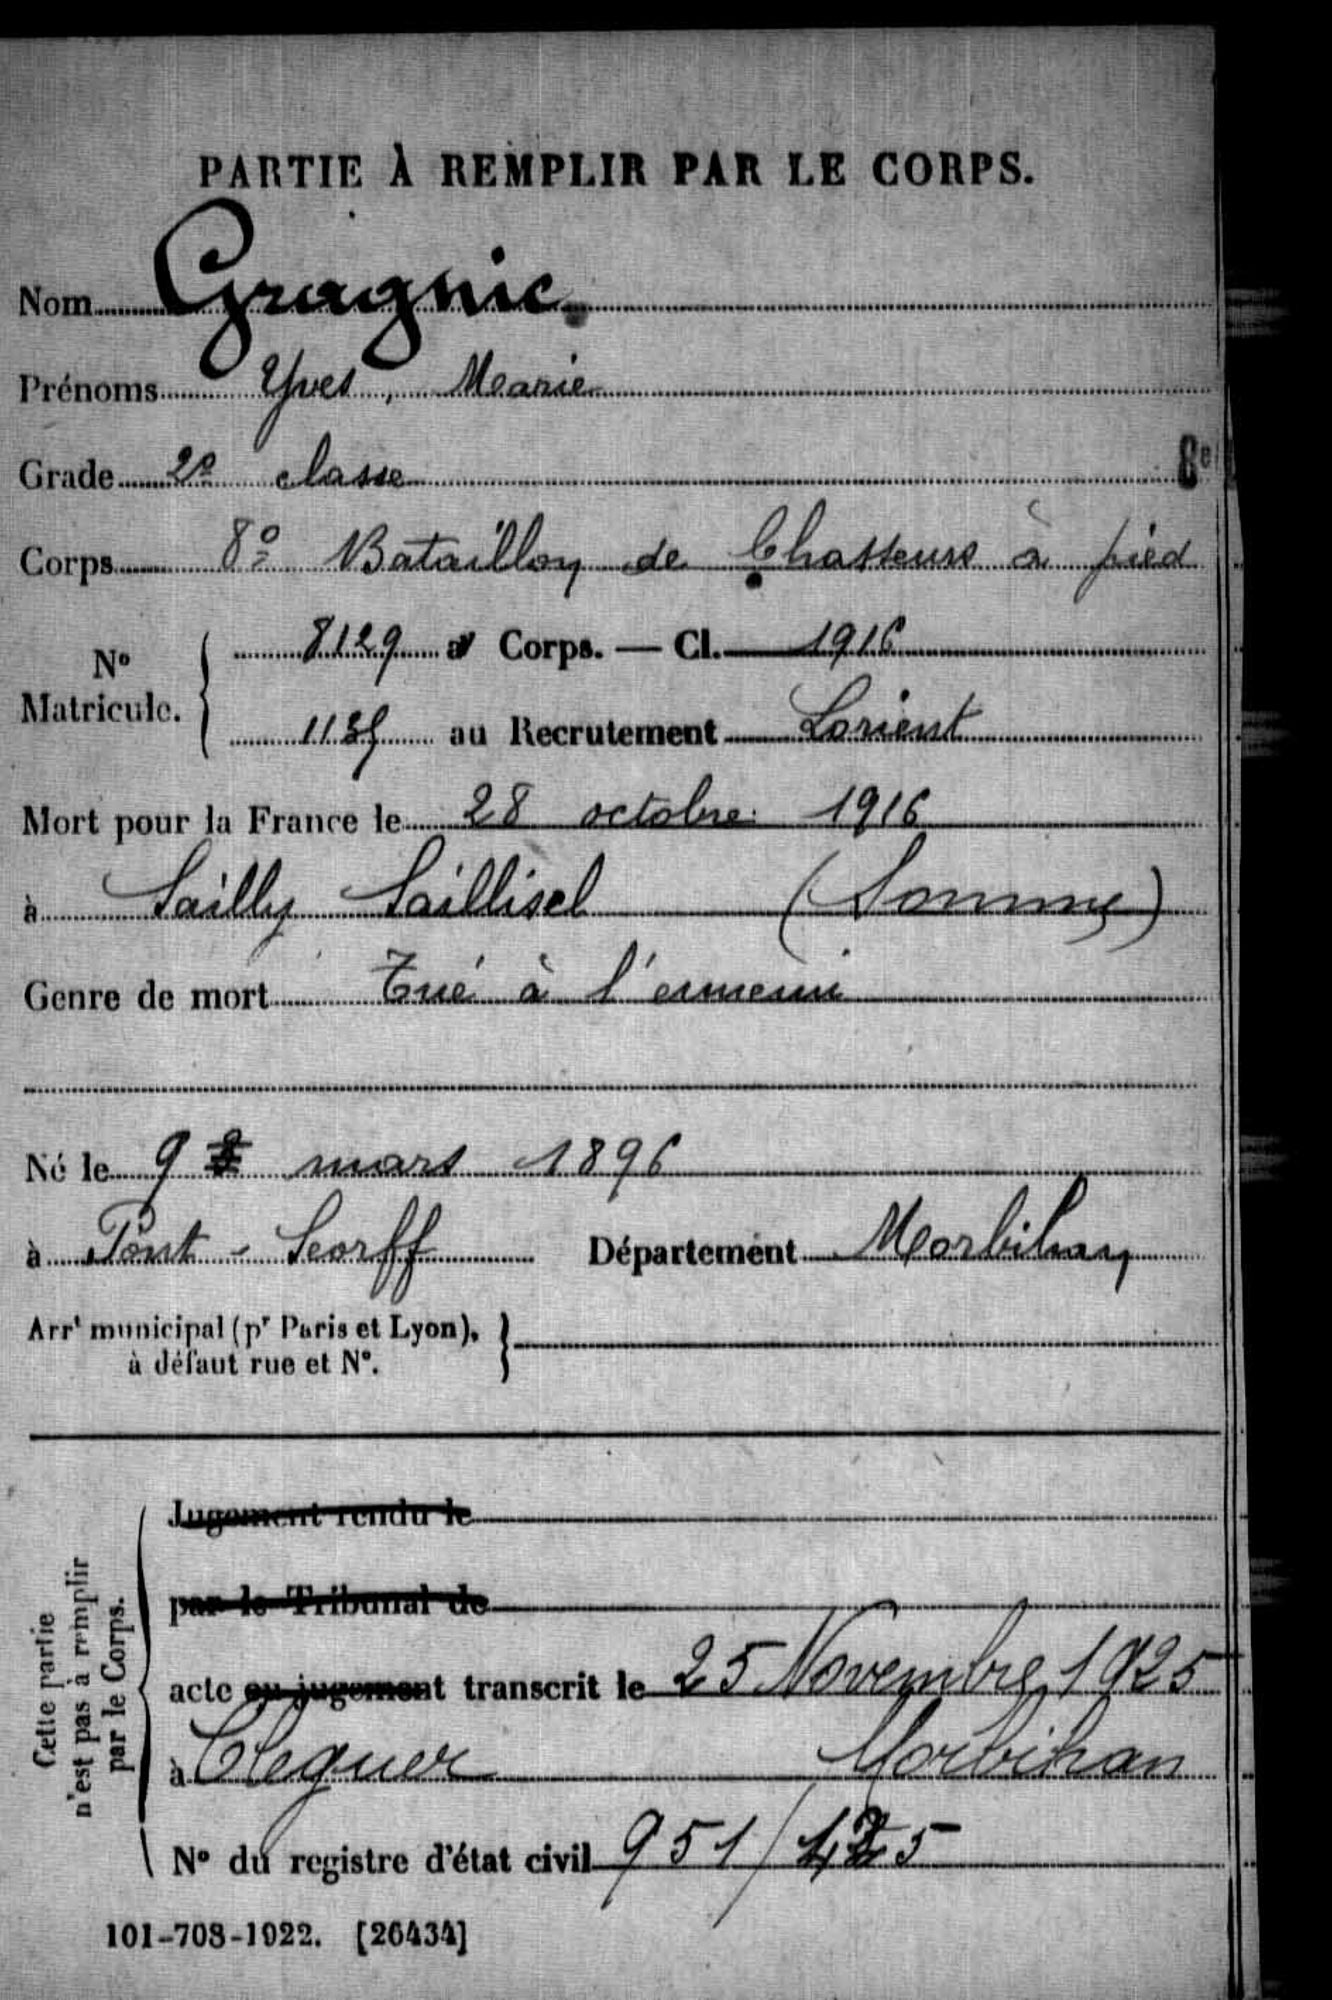 PARTIE À REMPLIR PAR LE CORPS.
Nom Gragnic
Prénoms Yves, Marie
Grade 2e classe
8e
Corps 8e Bataillon de Chasseurs à pied
N° Matricule. 8129 au Corps. — Cl. 1916
au Recrutement Lorient
Mort pour la France le 28 octobre 1916
à Sailly Saillisel (Somme)
Genre de mort Tué à l'ennemi
Né le 9 mars 1896
à Pont-Scorff Département Morbihan
Arrt municipal (pr Paris et Lyon),
à défaut rue et N°.
Cette partie
n'est pas à remplir
par le Corps.
Jugement rendu le
par le Tribunal de
acte ou jugement transcrit le 25 Novembre 1925
à Cleguer Morbihan
N° du registre d'état civil 951/
101-708-1922. [26434]